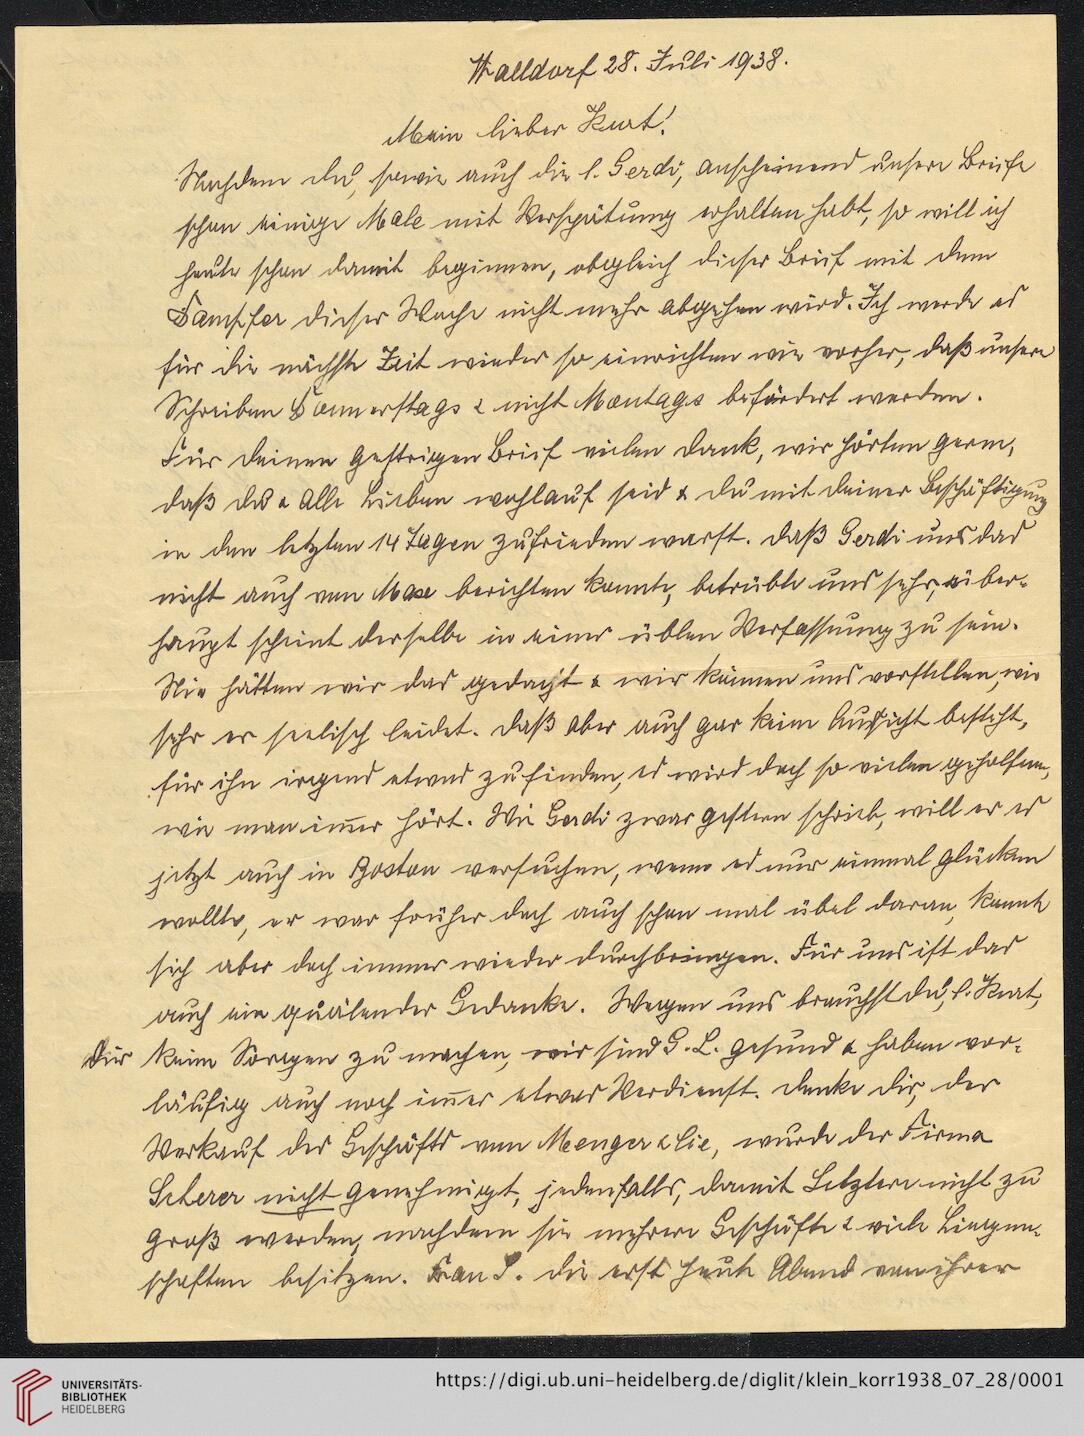 Walldorf 28. Juli 1938.
Mein lieber Kurt!
Nachdem du, sowie auch die l. Gerdi, anscheinend unsere Briefe
schon einige Male mit Verspätung erhalten habt, so will ich
heute schon damit beginnen, obgleich dieser Brief mit dem
Dampfer dieser Woche nicht mehr abgehen wird. Ich werde es
für die nächste Zeit wieder so einrichten wie vorher, daß unsere
Schreiben Donnerstags & nicht Montags befördert werden.
Für deinen gestrigen Brief vielen Dank, wir hörten gern,
daß du & alle Lieben wohlauf seid & du mit deiner Beschäftigung
in den letzten 14 Tagen zufrieden warst. Daß Gerdi uns das
nicht auch von Max berichten konnte, betrübte uns sehr, über-
haupt scheint derselbe in einer üblen Verfassung zu sein.
Nie hätten wir das gedacht & wir können uns vorstellen, wie
sehr er seelisch leidet. Daß aber auch gar keine Aussicht besteht,
für ihn irgend etwas zu finden, es wird doch so vielen geholfen,
wie man immer hört. Wie Gerdi zwar gestern schrieb, will er es
jetzt auch in Boston versuchen, wenn es nur einmal glücken
wollte, er war früher doch auch schon mal übel daran, konnte
sich aber doch immer wieder durchbringen. Für uns ist das
auch ein quälender Gedanke. Wegen uns brauchst du, l. Kurt,
Dir keine Sorgen zu machen, wir sind G. L. gesund & haben vor-
läufig auch noch immer etwas Verdienst. Denke dir, der
Verkauf des Geschäfts von Menger & Cie, wurde der Firma
Scherer nicht genehmigt, jedenfalls, damit Letztere nicht zu
groß werden, nachdem sie mehrere Geschäfte & viele Liegen-
schaften besitzen. Frau S. die erst heute Abend von ihrer
UNIVERSITÄTS-
BIBLIOTHEK
HEIDELBERG
https://digi.ub.uni-heidelberg.de/diglit/klein_korr1938_07_28/0001